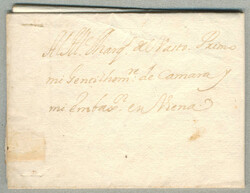 Al Ill.e Marq.s de Pascr. Primo
mi Gentilhom.e de Camara y
mi Embax.r en Viena